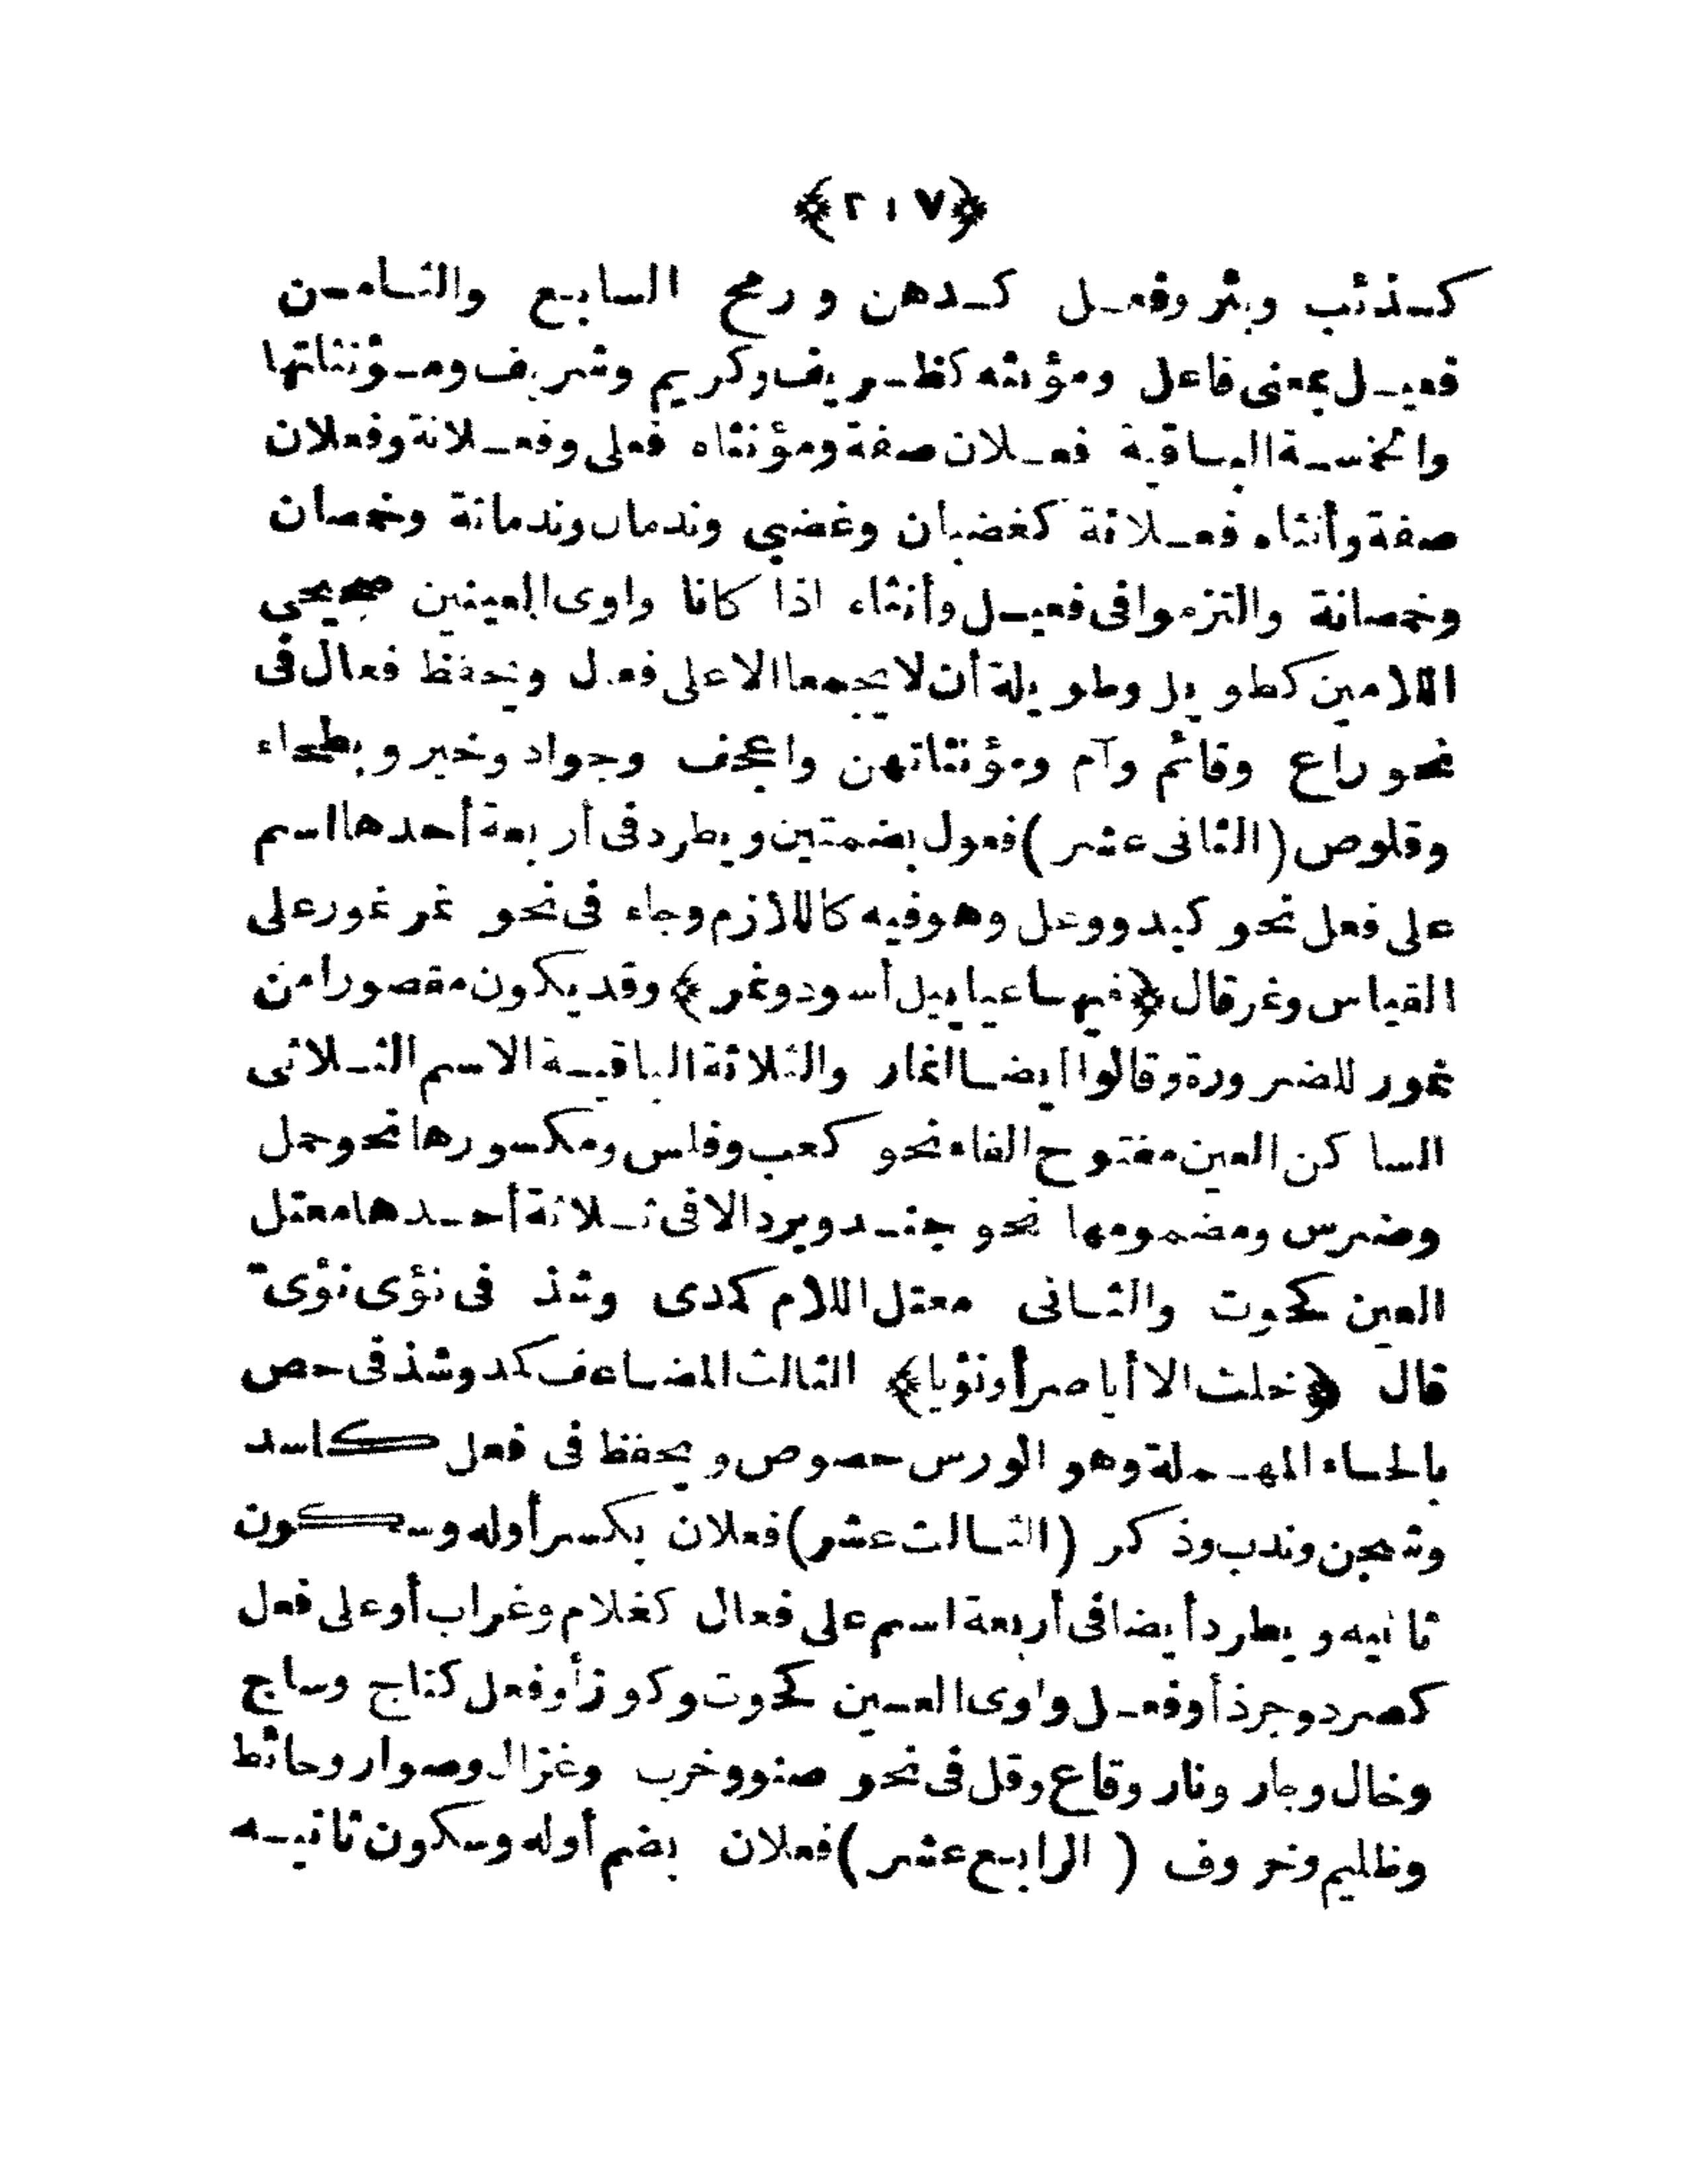 ﴿٢١٧﴾
كذئب وبئر وفعل كدهن ورمح السابع والثامن
فعيل بمعنى فاعل ومؤنثه كظريف وكريم وشريف ومؤنثاتها
والخمسة الباقية فعلان صفة ومؤنثاه فعلى وفعلانة وفعلان
صفة وأنثاه فعلانة كغضبان وغضبى وندمان وندمانة وخمصان
وخمصانة والتزموا فى فعيل وأنثاه اذا كانا واوى العينين صحيحى
اللامين كطويل وطويلة أن لا يجمعا الا على فعال ويحفظ فعال فى
نحو راع وقائم وآم ومؤنثاتهن واعجف وجواد وخير وبطحاء
وقلوص (الثانى عشر) فعول بضمتين ويطرد فى أربعة أحدها اسم
على فعل نحو كبد ووعل وهو فيه كاللازم وجاء فى نحو نمر نمور على
القياس ونمر قال ﴿فيها عياييل أسود ونمر﴾ وقد يكون مقصورا من
نمور للضرورة وقالوا أيضا انمار والثلاثة الباقية الاسم الثلاثى
الساكن العين مفتوح الفاء نحو كعب وفلس ومكسورها نحو حمل
وضرس ومضمومها نحو جند وبرد الا فى ثلاثة أحدها معتل
العين كحوت والثانى معتل اللام كمدى وشذ فى نؤى نؤى
قال ﴿خلت الا أياصر أو نئويا﴾ الثالث المضاعف كمد وشذ فى حص
بالحاء المهملة وهو الورس حصوص ويحفظ فى فعل كاسد
وشجن وندب وذكر (الثالث عشر) فعلان بكسر أوله وسكون
ثانيه ويطرد أيضا فى أربعة اسم على فعال كغلام وغراب أو على فعل
كصرد وجرذ أو فعل واوى العين كحوت وكوز أو فعل كتاج وساج
وخال وجار ونار وقاع وقل فى نحو صنو وخرب وغزال وصوار وحائط
وظليم وخروف (الرابع عشر) فعلان بضم أوله وسكون ثانيه